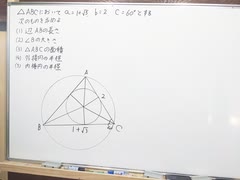 △ABCにおいて a=1+√3 b=2 C=60°とする
次のものを求めよ
(1) 辺ABの長さ
(2) ∠Bの大きさ
(3) △ABCの面積
(4) 外接円の半径
(5) 内接円の半径
A
2
B
C
1+√3